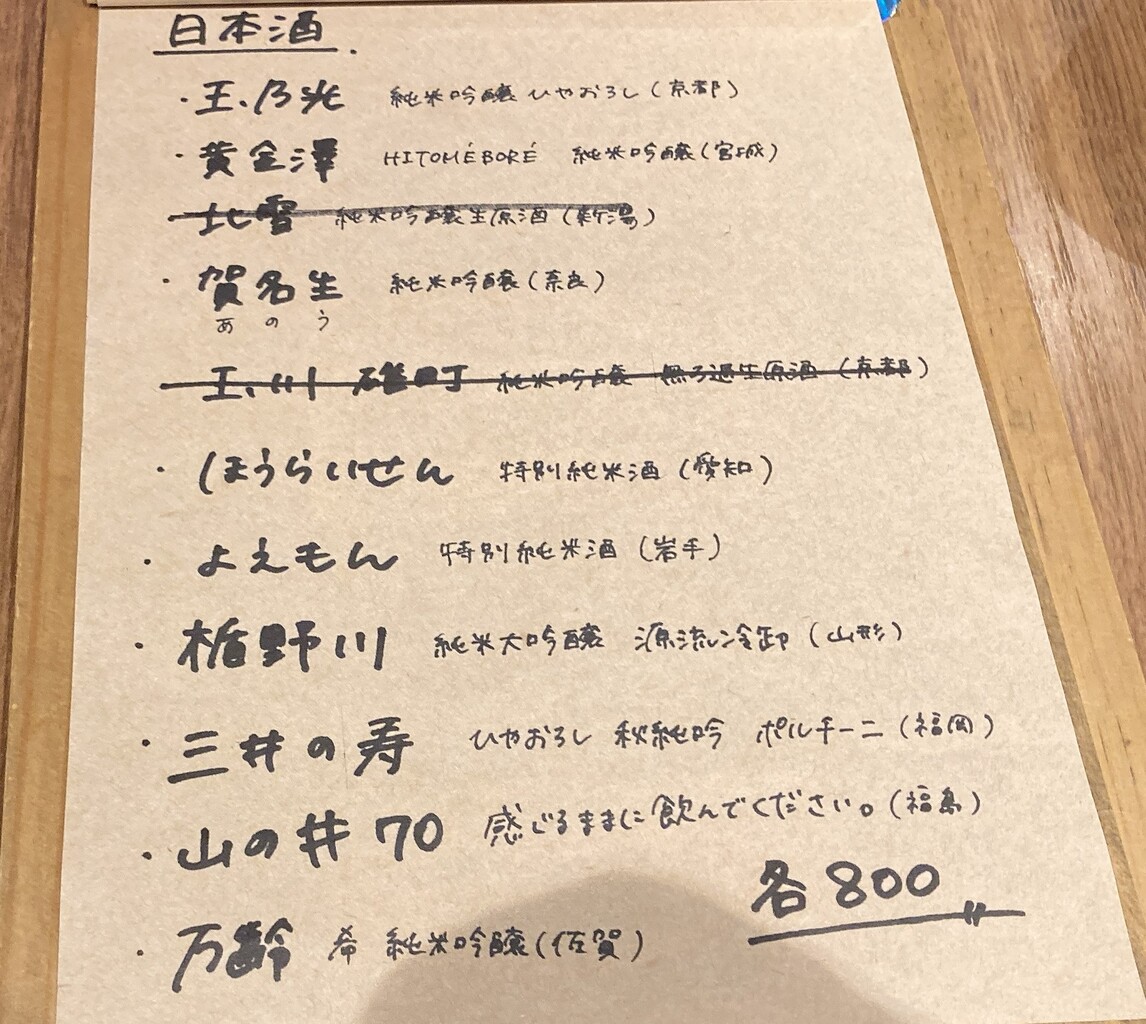 日本酒.
・王乃光 純米吟醸 ひやおろし(京都)
・黄金澤 HITOMÉBORÉ 純米吟醸(宮城)
北雪 純米吟醸生原酒(新潟)
・賀名生 純米吟醸(奈良)
あのう
玉川 雄町 純米吟醸 無ろ過生原酒(京都)
・ほうらいせん 特別純米酒(愛知)
・よえもん 特別純米酒(岩手)
・楯野川 純米大吟醸 源流冷卸(山形)
・三井の寿 ひやおろし 秋純吟 ポルチーニ(福岡)
・山の井70 感じるままに飲んでください。(福島)
各800
・万齢 希 純米吟醸(佐賀)